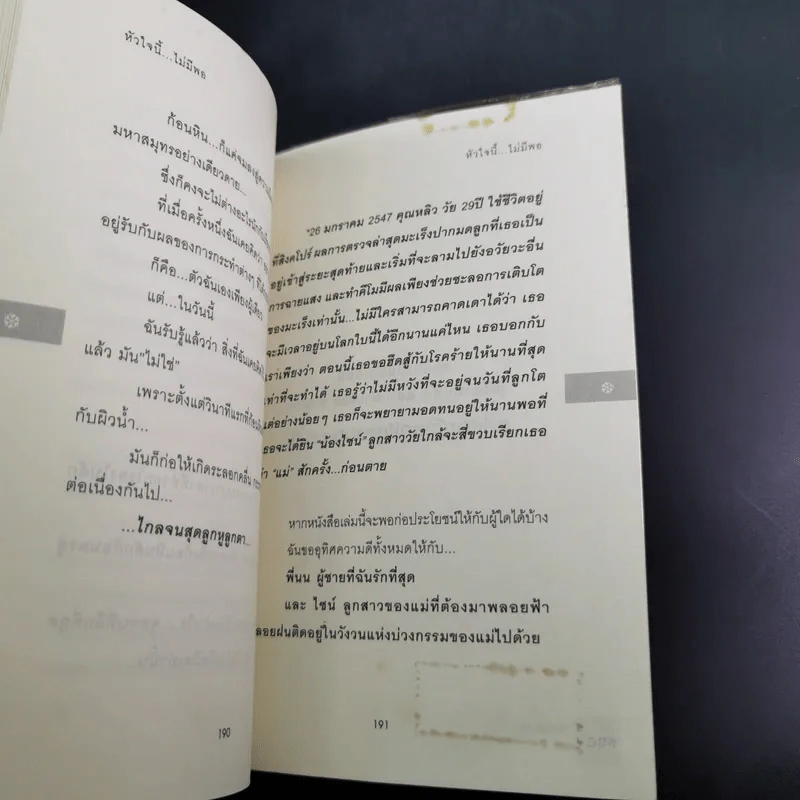 หัวใจนี้...ไม่มีพอ
ก้อนหิน...ก็แค่จมลงสู่
มหาสมุทรอย่างเดียวดาย...
ซึ่งก็คงจะไม่ต่างอะไร
ที่เมื่อครั้งหนึ่งฉันเคยคิดว่า
อยู่รับกับผลของการกระทำต่างๆ
ก็คือ...ตัวฉันเองเพียงผู้เดียว
แต่...ในวันนี้
ฉันรับรู้แล้วว่า สิ่งที่ฉันเคย
แล้ว มัน"ไม่ใช่"
เพราะตั้งแต่วินาทีแรกที่
กับผิวน้ำ...
มันก็ก่อให้เกิดระลอกคลื่น
ต่อเนื่องกันไป...
...ไกลจนสุดลูกหูลูกตา...
190
หัวใจนี้...ไม่มีพอ
"26 มกราคม 2547 คุณหลิว วัย 29ปี ใช้ชีวิตอยู่
ที่สิงคโปร์ ผลการตรวจล่าสุดมะเร็งปากมดลูกที่เธอเป็น
อยู่เข้าสู่ระยะสุดท้ายและเริ่มที่จะลามไปยังอวัยวะอื่น
การฉายแสง และทำคีโมมีผลเพียงช่วยชะลอการเติบโต
ของมะเร็งเท่านั้น...ไม่มีใครสามารถคาดเดาได้ว่า เธอ
จะมีเวลาอยู่บนโลกใบนี้ได้อีกนานแค่ไหน เธอบอกกับ
เราเพียงว่า ตอนนี้เธอขอฮึดสู้กับโรคร้ายให้นานที่สุด
เท่าที่จะทำได้ เธอรู้ว่าไม่มีหวังที่จะอยู่จนวันที่ลูกโต
แต่อย่างน้อยๆ เธอก็จะพยายามอดทนอยู่ให้นานพอที่
เธอจะได้ยิน "น้องไซน์" ลูกสาววัยใกล้จะสี่ขวบเรียกเธอ
ว่า "แม่" สักครั้ง...ก่อนตาย
หากหนังสือเล่มนี้จะพอก่อประโยชน์ให้กับผู้ใดได้บ้าง
ฉันขออุทิศความดีทั้งหมดให้กับ...
พี่นน ผู้ชายที่ฉันรักที่สุด
และ ไซน์ ลูกสาวของแม่ที่ต้องมาพลอยฟ้า
ลอยฝนติดอยู่ในวังวนแห่งบ่วงกรรมของแม่ไปด้วย
191